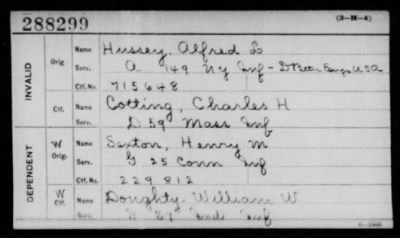 288299
(3-36-4)
INVALID
Orig.
Name Hussey, Alfred L
Serv. A 149 NY Inf - D Batn Engs USA
Ctf. No. 715648
Ctf.
Name Cotting, Charles H
Serv. D 59 Mass Inf
DEPENDENT
W
Orig.
Name Sexton, Henry M
Serv. G 25 Conn Inf
Ctf. No. 229812
W
Ctf.
Name Doughty, William W
Serv. 27 Ind Inf